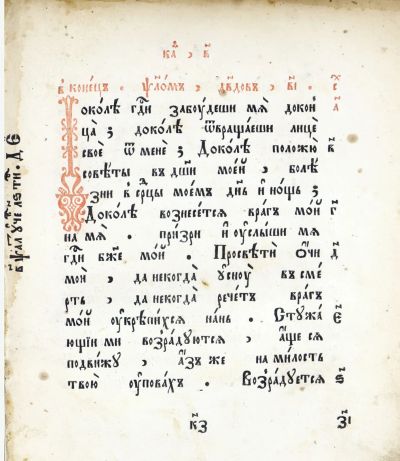 в конецъ . ѱло́мъ , дв҃довъ , в҃і .
Доко́лѣ гдⷭ҇и забоудеши мѧ̀ докон
ца̀ ; доко́лѣ ѿвращаеши лицѐ
своѐ ѿ менѐ ; Доко́лѣ положю̀
совѣ́ты въ дш҃и мое́й , болѣ́
зни в ср҃цы мое́мъ дн҃ь и но́щь ;
Доко́лѣ вознесе́тсѧ вра́гъ мо́й
на мѧ̀ . при́зри и оуслы́ши мѧ̀
гдⷭ҇и бж҃е мо́й . Просвѣтѝ о́чи
моѝ , да некогда̀ оусноу̀ въ сме́
рть , да некогда̀ рече́тъ вра́гъ
мо́й оукрѣпи́хсѧ на́нь . Стужа́
ющіи ми возра́дуютсѧ , а́ще сѧ
подви́жу , а́зъ же на ми́лость
твою̀ оупова́хъ . Возра́дуетсѧ
в҃
г҃
д҃
є҃
ѕ҃
к҃з
з҃і